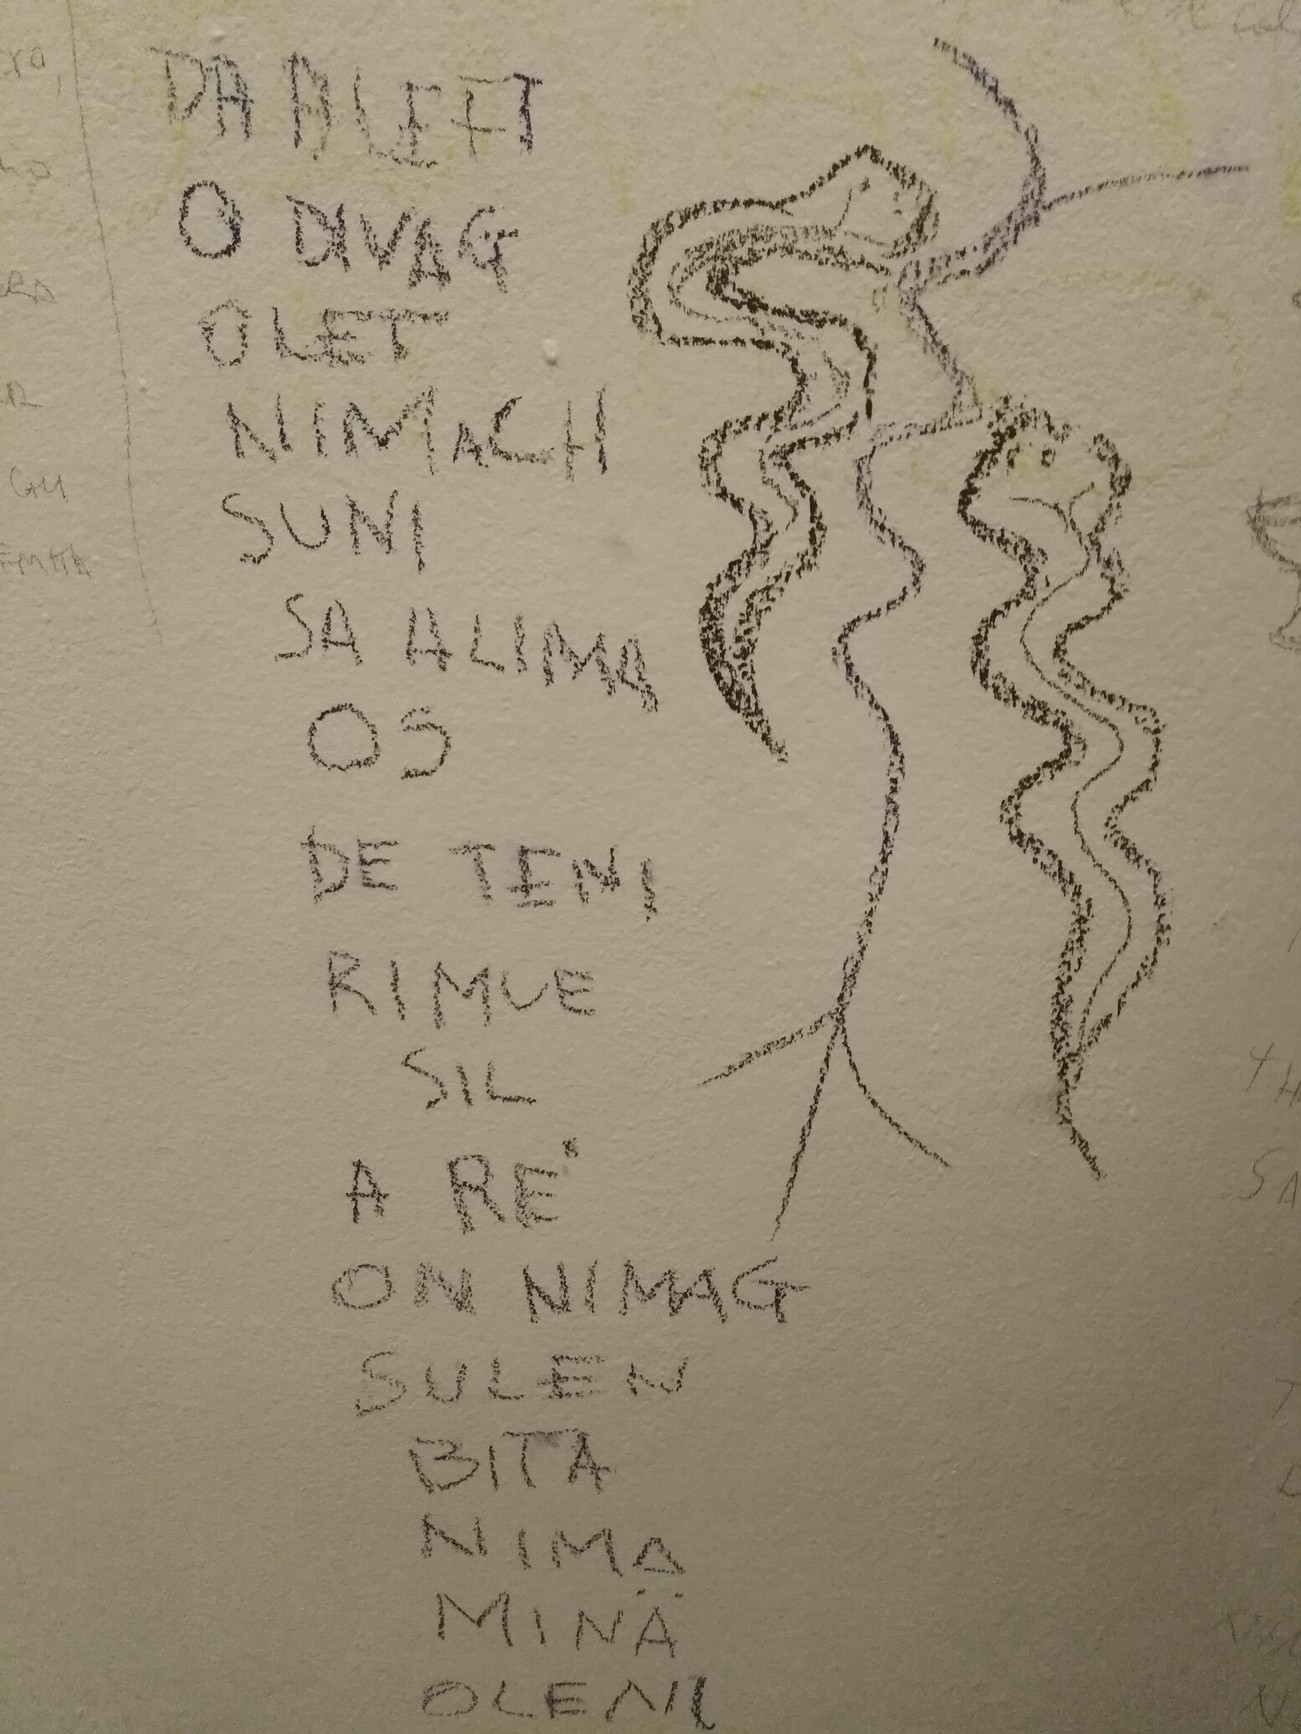 DA ALEFT
O DIVAG
OLET
NIIMACH
SUNI
SA ALIMA
OS
DE TENI
RIMUE
SIL
A RE'
ON NIMAG
SULEN
BITA
NIMA
MINÄ
OLENI